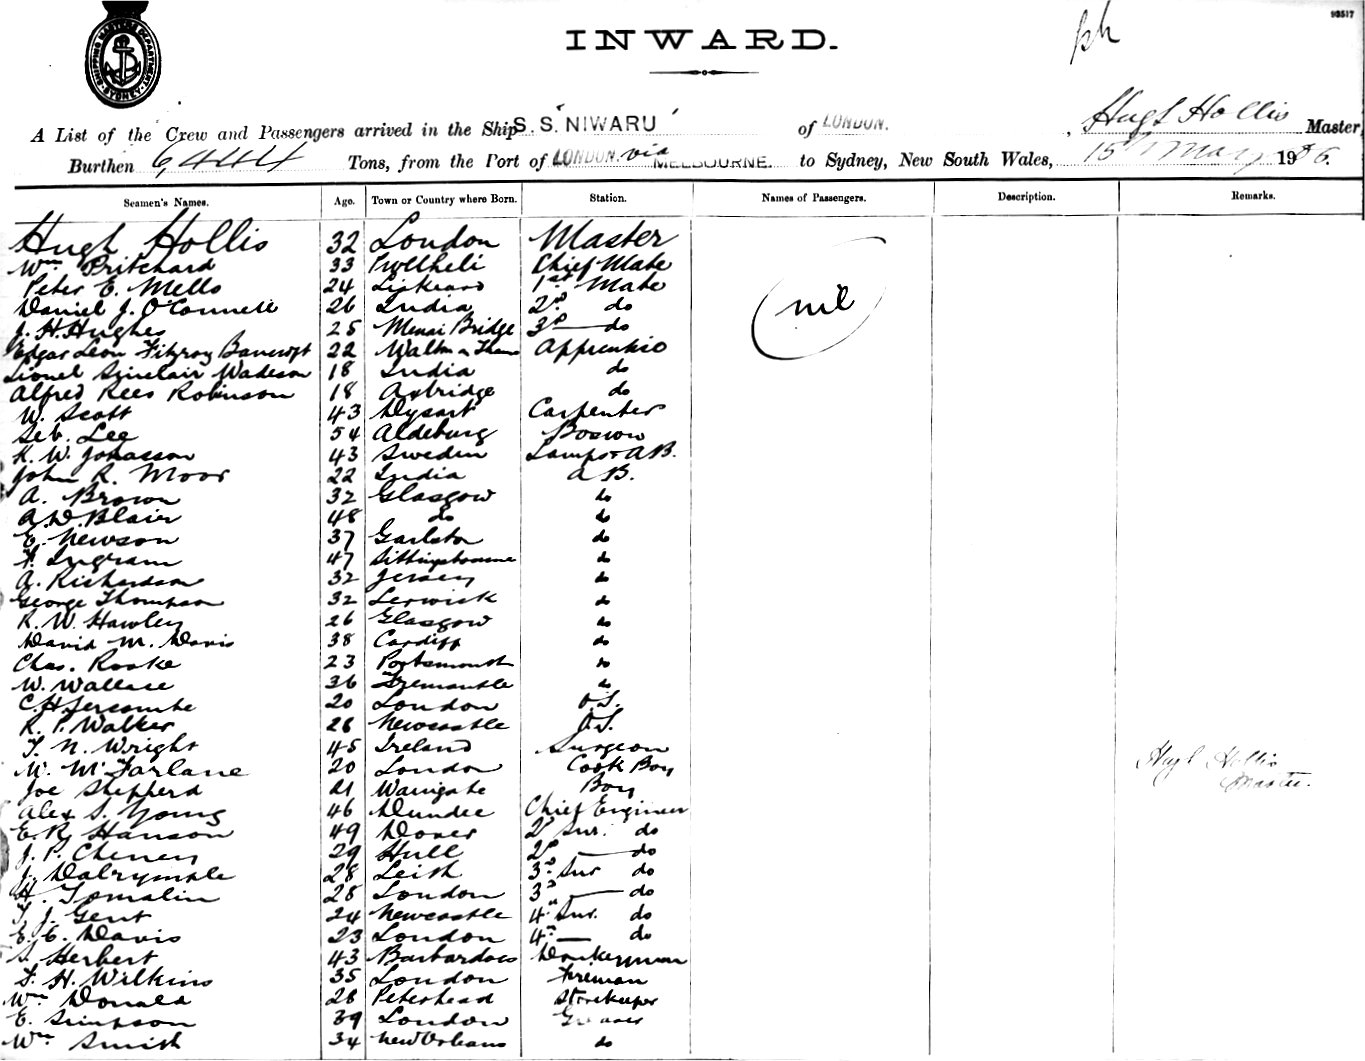 93517
SHIPPING MASTERS DEPARTMENT. SYDNEY.
INWARD.
A List of the Crew and Passengers arrived in the Ship S. S. NIWARU of LONDON. , Hugh Hollis Master
Burthen 6,444 Tons, from the Port of LONDON. via MELBOURNE. to Sydney, New South Wales, 15 May 1906.
Seamen's Names. Age. Town or Country where Born. Station. Names of Passengers. Description. Remarks.
Hugh Hollis 32 London Master
Wm Pritchard 33 Pwllheli Chief Mate
Peter E. Mello 24 Liskeard 1st Mate
nil
Daniel J. O'Connell 26 India 2d. do
J. H. Hughes 25 Menai Bridge 3d — do
Edgar Leon Fitzroy Bancroft 22 Walton on Thams Apprentice
Lionel Sinclair Wadeson 18 India do
Alfred Rees Robinson 18 Axbridge do
W. Scott 43 Dysart Carpenter
Seb. Lee 54 Aldeburg Boswn
K. W. Johasson 43 Sweden Lamps & A B.
John R. Moor 22 India A B.
A. Brown 32 Glasgow do
A. D. Blair 48 do do
E. Newson 37 Garlston do
F. Ingram 47 Sittingbourne do
A. Richardson 32 Jersey do
George Thompson 32 Lerwick do
R. W. Hawley 26 Glasgow do
David M. Davis 38 Cardiff do
Chas. Rooke 23 Portsmouth do
W. Wallace 36 Fremantle do
C. H. Jercombe 20 London O.S.
R. P. Walker 26 Newcastle O.S.
T. N. Wright 45 Ireland Surgeon
W. McFarlane 20 London Cook Boy
Hugh Hollis
Master.
Joe Shepperd 21 Boy
Alex S. Young 46 Dundee Chief Engineer
E. R. Hanson 49 Dover 2d Snr. do
J. P. Cheney 29 Hull 2d — do
J. Dalrymple 28 Leith 3rd Snr do
H. Tomalin 28 London 3d — do
T. J. Gent 24 Newcastle 4th Snr. do
E. C. Davis 23 London 4th — do
S. Herbert 43 Barbardoes Donkeyman
F. H. Wilkins 35 London Fireman
Wm Donald 28 Peterhead Storekeeper
E. Simpson 39 London Greaser
Wm Smith 34 New Orleans do